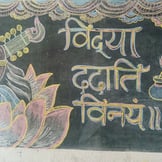 विदया
ददाति
विनयं॥